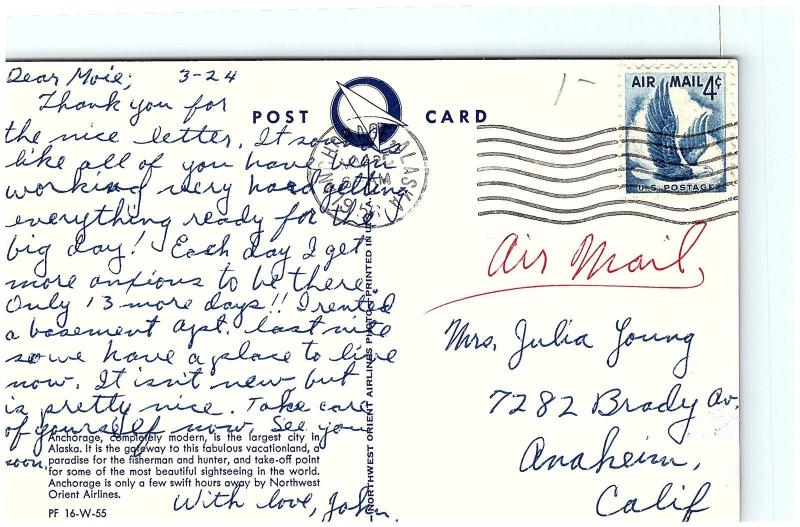 Dear Moie; 3-24
Thank you for
the nice letter. It sounds
like all of you have been
working very hard getting
everything ready for the
big day! Each day I get
more anxious to be there.
Only 13 more days!! I rented
a basement apt. last nite
so we have a place to live
now. It isn't new but
is pretty nice. Take care
of yourself now. See you
soon.
With love, John.
Anchorage, completely modern, is the largest city in
Alaska. It is the gateway to this fabulous vacationland, a
paradise for the fisherman and hunter, and take-off point
for some of the most beautiful sightseeing in the world.
Anchorage is only a few swift hours away by Northwest
Orient Airlines.
PF 16-W-55
POST CARD
NORTHWEST ORIENT AIRLINES PHOTO-PRINTED IN U.S.A.
ALASKA
AIR MAIL 4¢
U.S. POSTAGE
Air Mail
Mrs. Julia Young
7282 Brady Av.
Anaheim,
Calif